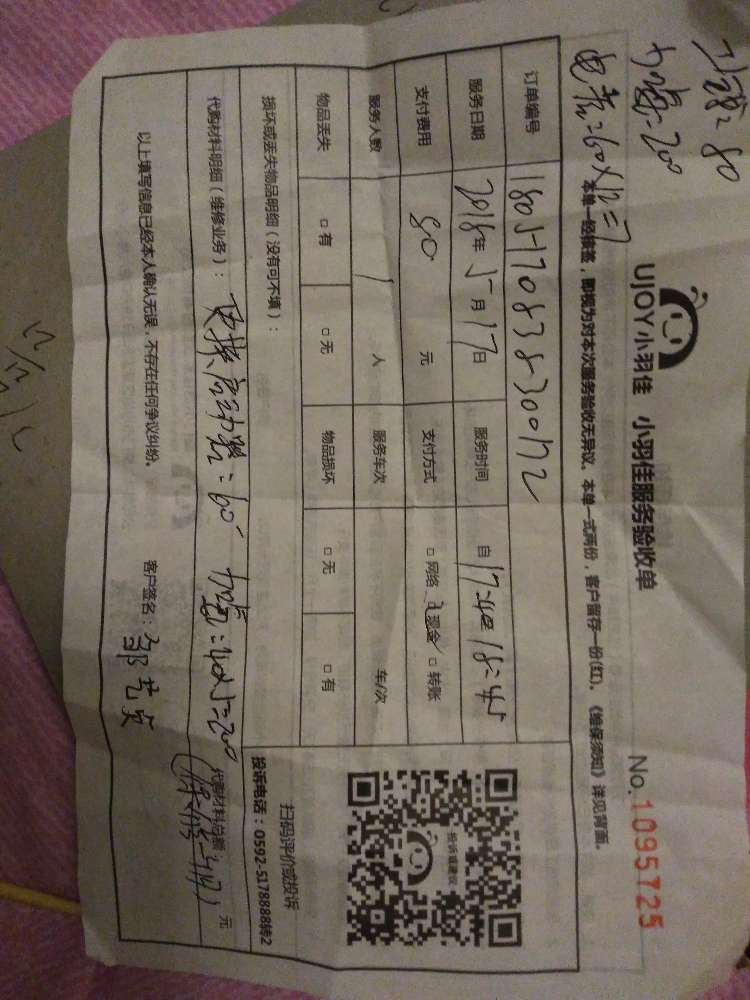 =80
=200
电容=60×12=7
UJOY小羽佳 小羽佳服务验收单
No.1095725
本单一经核签，即视为对本次服务验收无异议。本单一式两份，客户留存一份(红)。《维保须知》详见背面。
订单编号 180517083830012
服务日期 2018年5月17日 服务时间 自17:40 18:45
支付费用 80 元 支付方式 □网络 □现金 □转账
服务人数 1 人 服务车次 车/次
物品丢失 □有 □无 物品损坏 □无 □有
损坏或丢失物品明细（没有可不填）：
代购材料明细（维修业务）： 更换启动器=60 =40×5=200 代购材料总需： 元
以上填写信息已经本人确认无误，不存在任何争议纠纷。 客户签名：邹艺贞
投诉或建议
扫码评价或投诉
投诉电话：0592-5178888转2